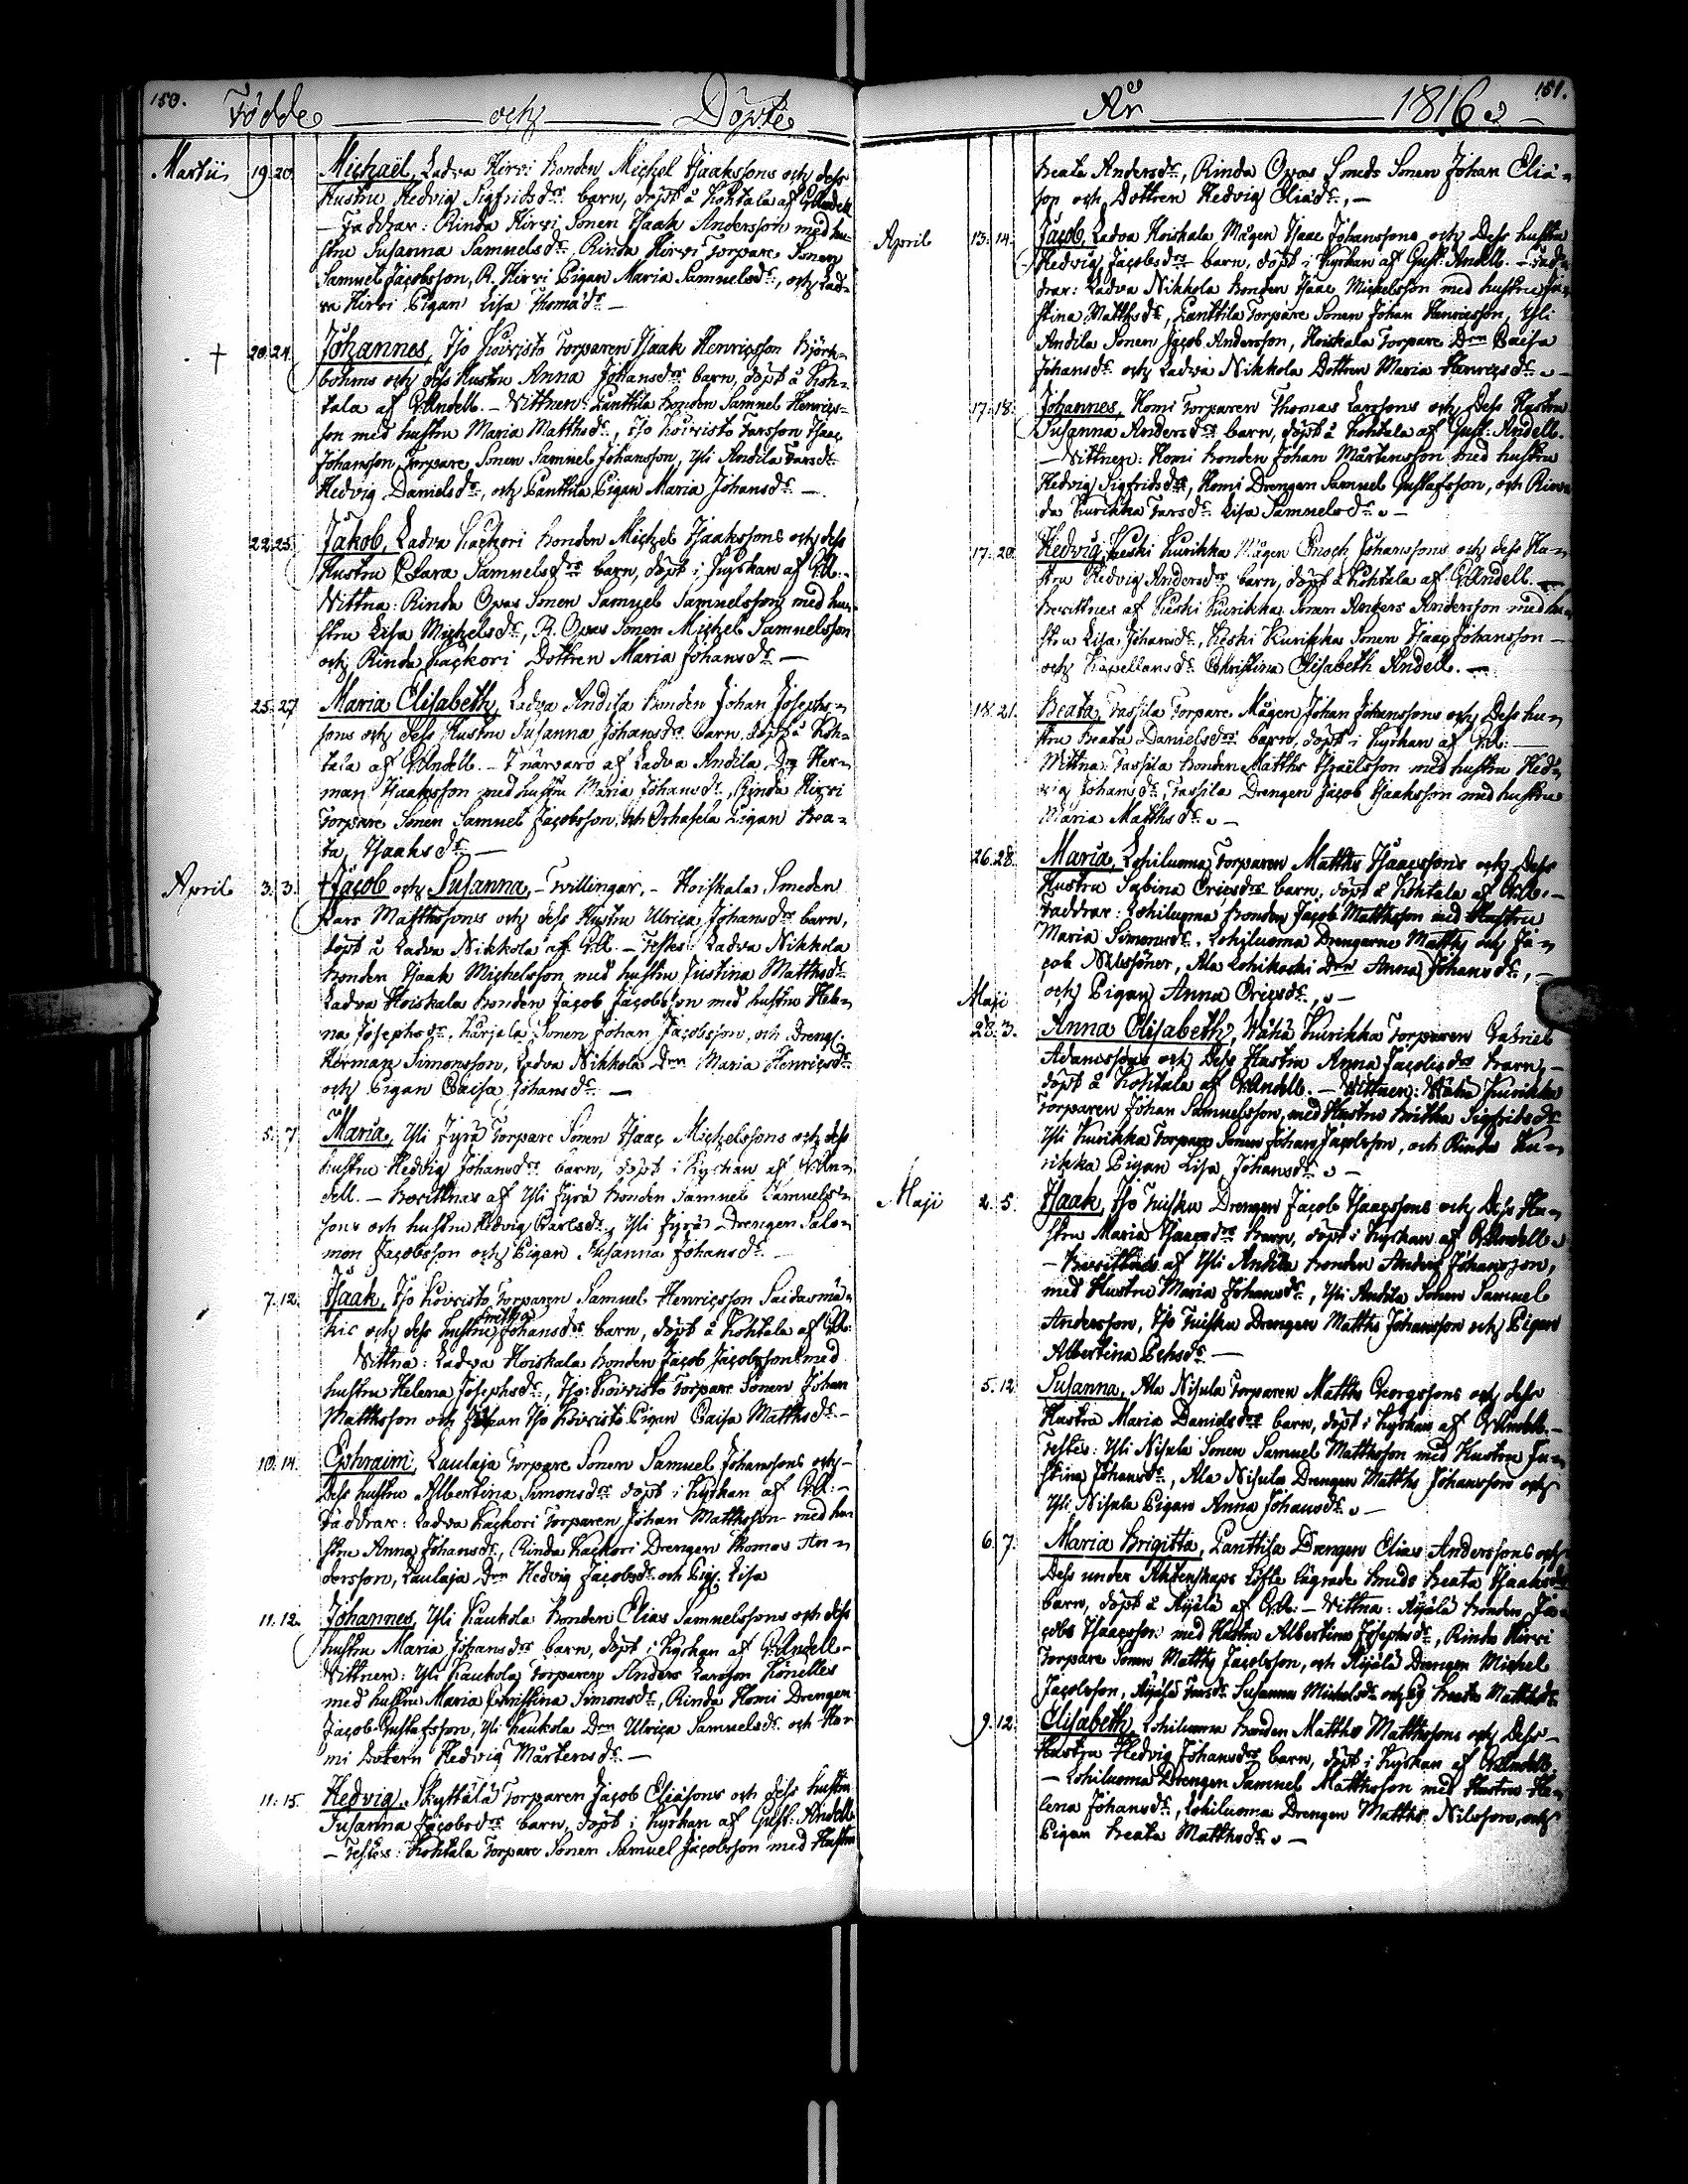 150.
Födde och Döpte
Martii 19. 20. Michaël, Ladva Hirvi Bonden Michel Isaakssons och dess
Hustru Hedvig Sigfridsdrs barn, döpt å Kohtala af G:Andell
— Faddrar: Rinda Hirvi Sonen Isaak Andersson med hu-
stru Susanna Samuelsdr. Rinda Hirvi Torpare Sonen
Samuel Jacobsson, R. Hirvi Pigan Maria Samuelsdr, och Lad-
va Hirvi Pigan Lisa Thomädr. —
† 20. 24. Johannes, Iso Koivisto Torparen Isaak Henricsson Björk-
bohms och dess Hustru Anna Johansdrs barn, döpt å Koh-
tala af G:Andell. — Vittnen: Panttila Bonden Samuel Henrics-
son med hustru Maria Matthsdr, Iso Koivisto Farsson Isaac
Johansson, Torpare Sonen Samuel Johansson, Yli Andila Farsdr
Hedvig Danielsdr, och Panttila Pigan Maria Johansdr. —
22. 25. Jakob, Ladva Kackori Bonden Michel Isaakssons och dess
Hustru Clara Samuelsdrs barn, döpt i Kyrkan af G:A:-
Vittna: Rinda Opas Sonen Samuel Samuelsson med hu-
stru Lisa Michelsdr, R. Opas Sonen Michel Samuelsson
och Rinda Kackori Dottren Maria Johansdr —
25. 27. Maria Elisabeth, Ladva Andila Bonden Johan Josephs-
sons och dess Hustru Susanna Johansdrs barn, döpt å Koh-
tala af G:Andell. — I närvaro af Ladva Andila Drg Her-
man Isaaksson med hustru Maria Johansdr, Rinda Hirvi
Torpare Sonen Samuel Jacobsson, och Orhasela Pigan Bea-
ta Isaaksdr —
April 3. 3. †Jacob och Susanna, — Tvillingar, — Hoiskala Smeden
Lars Matthssons och dess Hustru Ulrica Johansdrs barn,
döpt å Ladva Nikkola af G:A. — Testes: Ladva Nikkola
Bonden Isaak Michelsson med hustru Justina Matthsdr
Ladva Hoiskala Bonden Jacob Jacobsson med hustru Hele-
na Josephsdr. Karjela Sonen Johan Jacobsson, och Dreng.
Herman Simonsson, Ladva Nikkola Drn Maria Henricsdr
och Pigan Caisa Johansdr. —
5. 7. Maria, Yli Jyrä Torpare Sonen Isaac Michelssons och dess
hustru Hedvig Johansdrs barn, döpt i Kyrkan af G:An-
dell. — Bevittnas af Yli Jyrä Bonden Samuel Samuels-
sons och hustru Hedvig Carlsdr, Yli Jyrä Drengen Salo-
mon Jacobsson och Pigan Susanna Johansdr. —
7. 12. Isaak, Iso Koivisto Torparen Samuel Henricsson Saidasmä-
kis och dess hustru Brittha Johansdrs barn, döpt å Kohtala af G:A:
Vittna: Ladva Hoiskala Bonden Jacob Jacobsson med
hustru Helena Josephsdr, Iso Koivisto Torpare Sonen Johan
Matthsson och Iso Koivisto Pigan Caisa Matthsdr. —
10. 14. Ephraim, Laulaja Torpare Sonen Samuel Johanssons och —
Dess hustru Albertina Simonsdrs döpt i Kyrkan af G:A:-
Faddrar: Ladva Kackori Torparen Johan Matthsson med hu-
stru Anna Johansdr, Rinda Kackori Drengen Thomas An-
dersson, Laulaja Drn Hedvig Jacobsdr och Pig. Lisa
11. 12. Johannes, Yli Kaukola Bonden Elias Samuelssons och dess
hustru Maria Johansdrs barn, döpt i Kyrkan af G:Andell —
Vittnen: Yli Kaukola Torparen Anders Larsson
med hustru Maria Christina Simonsdr, Rinda Homi Drengen
Jacob Gustafsson, Yli Kaukola Drn Ulrica Samuelsdr och Ho-
mi Hedvig Mårtensdr. —
11. 15. Hedvig, Skyttälä Torparen Jacob Eliäsons och dess hustru
Susanna Jacobsdrs barn, döpt i Kyrkan af Gust: Andell
— Testes: Kohtala Torpare Sonen Samuel Jacobsson med Hustru
151.
År 1816.
Beata Andersdr, Rinda Opas Smeds Sonen Johan Eliä-
son och Dottren Hedvig Eliädr, —
April 13. 14. Jacob, Ladva Hoiskala Mågen Isaac Johanssons och Dess hustru
Hedvig Jacobsdrs barn, döpt i Kyrkan af Gust: Andell. — Fad-
drar: Ladva Nikkola Bonden Isaac Michelsson med hustru Ju-
stina Matthsdr, Panttila Torpare Sonen Johan Henricsson, Yli
Andila Sonen Jacob Andersson, Hoiskala Torpare Drn Caisa
Johansdr och Ladva Nikkola Dottren Maria Henricsdr. —
17. 18. Johannes, Homi Torparen Thomas Larssons och Dess Hustru
Susanna Andersdrs barn, döpt å Kohtala af Gust: Andell.
— Vittnen: Homi Bonden Johan Mårtensson med hustru
Hedvig Sigfridsdr, Homi Drengen Samuel Gustafsson, och Rin-
da Kurikka Farsdr Lisa Samuelsdr. —
17. 20. Hedvig, Keski Kurikka Mågen Enoch Johanssons och dess Hu-
stru Hedvig Andersdrs barn, döpt å Kohtala af G:Andell. —
Bevittnes af Keski Kurikka Sonen Anders Andersson med hu-
stru Lisa Johansdr, Keski Kurikka Sonen Isaac Johansson —
och Kapellansdr Christina Elisabeth Andell. —
18. 21. Beata, Tassila Torpare Mågen Johan Johanssons och Dess hu-
stru Beata Danielsdrs barn, döpt i Kyrkan af G:A: —
Vittna: Tassila Bonden Matths Israelsson med hustru Hed-
vig Johansdr, Tassila Drengen Jacob Isaaksson med hustru
Maria Matthsdr. —
26. 28. Maria, Lohiluoma Torparen Matths Isaacssons och Dess
Hustru Sabina Ericsdrs barn, döpt å Kohtala af G:A: —
Faddrar: Lohiluoma Bonden Jacob Matthsson med Hustru
Maria Simonsdr. Lohiluoma Drengarne Matths och Ja-
cob Nilssöner, Ala Lohikoski Drn Anna Johansdr, —
och Pigan Anna Ericsdr. —
Maji
28. 3. Anna Elisabeth, Wähä Kurikka Torparen Gabriel
Adamssons och Dess Hustru Anna Jacobsdrs barn, —
döpt å Kohtala af G:Andell. — Vittnen: Wähä Kurikka
Torparen Johan Samuelsson, med Hustru Britha Sigfridsdr
Yli Kurikka Torpare Sonen Johan Jacobsson, och Rinda Ku-
rikka Pigan Lisa Johansdr. —
Maji 2. 5. Isaak, Iso Tuisku Drengen Jacob Isaacssons och Dess Hu-
stru Maria Isaacsdrs barn, döpt i Kyrkan af G:Andell.
— Bevittnas af Yli Andila Bonden Anders Johansson,
med Hustru Maria Johansdr, Yli Andila Sonen Samuel
Andersson, Iso Tuisku Drengen Matths Johansson och Pigan
Albertina —
5. 12. Susanna, Ala Nisula Torparen Matths Georgssons och dess
Hustru Maria Danielsdrs barn, döpt i Kyrkan af G:Andell. —
Testes: Yli Nisula Sonen Samuel Matthsson med Hustru Ju-
stina Johansdr, Ala Nisula Drengen Matths Johansson och
Yli Nisula Pigan Anna Johansdr. —
6. 7. Maria Brigitta, Panttila Drengen Elias Anderssons och
Dess under Äktenskaps Löfte lägrade Brud Beata Isaaksdrs
barn, döpt å Äijälä af G:A: — Vittna: Äijälä Bonden Ja-
cob Isaacsson med Hustru Albertina Josephsdr, Rinda Hirvi
Torpare Sonen Matths Jacobsson, och Äijälä Drengen Michel
Jacobsson, Äijälä Farsdr Susanna Michelsdr och Pig Beata Matthsdr
9. 12. Elisabeth, Lohiluoma Bonden Matths Matthssons och Dess —
Hustru Hedvig Johansdrs barn, döpt i Kyrkan af G:Andell.
— Lohiluoma Drengen Samuel Matthsson med Hustru He-
lena Johansdr, Lohiluoma Drengen Matths Nilsson, och
Pigan Beata Matthsdr. —